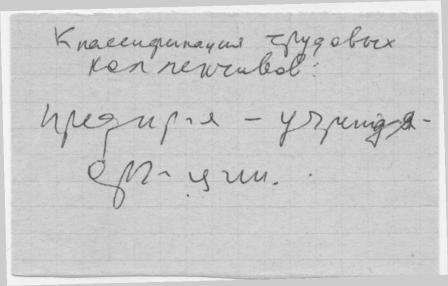 Классификация трудовых
коллективов:
предпр-я – учрежд-я –
орг-ции.